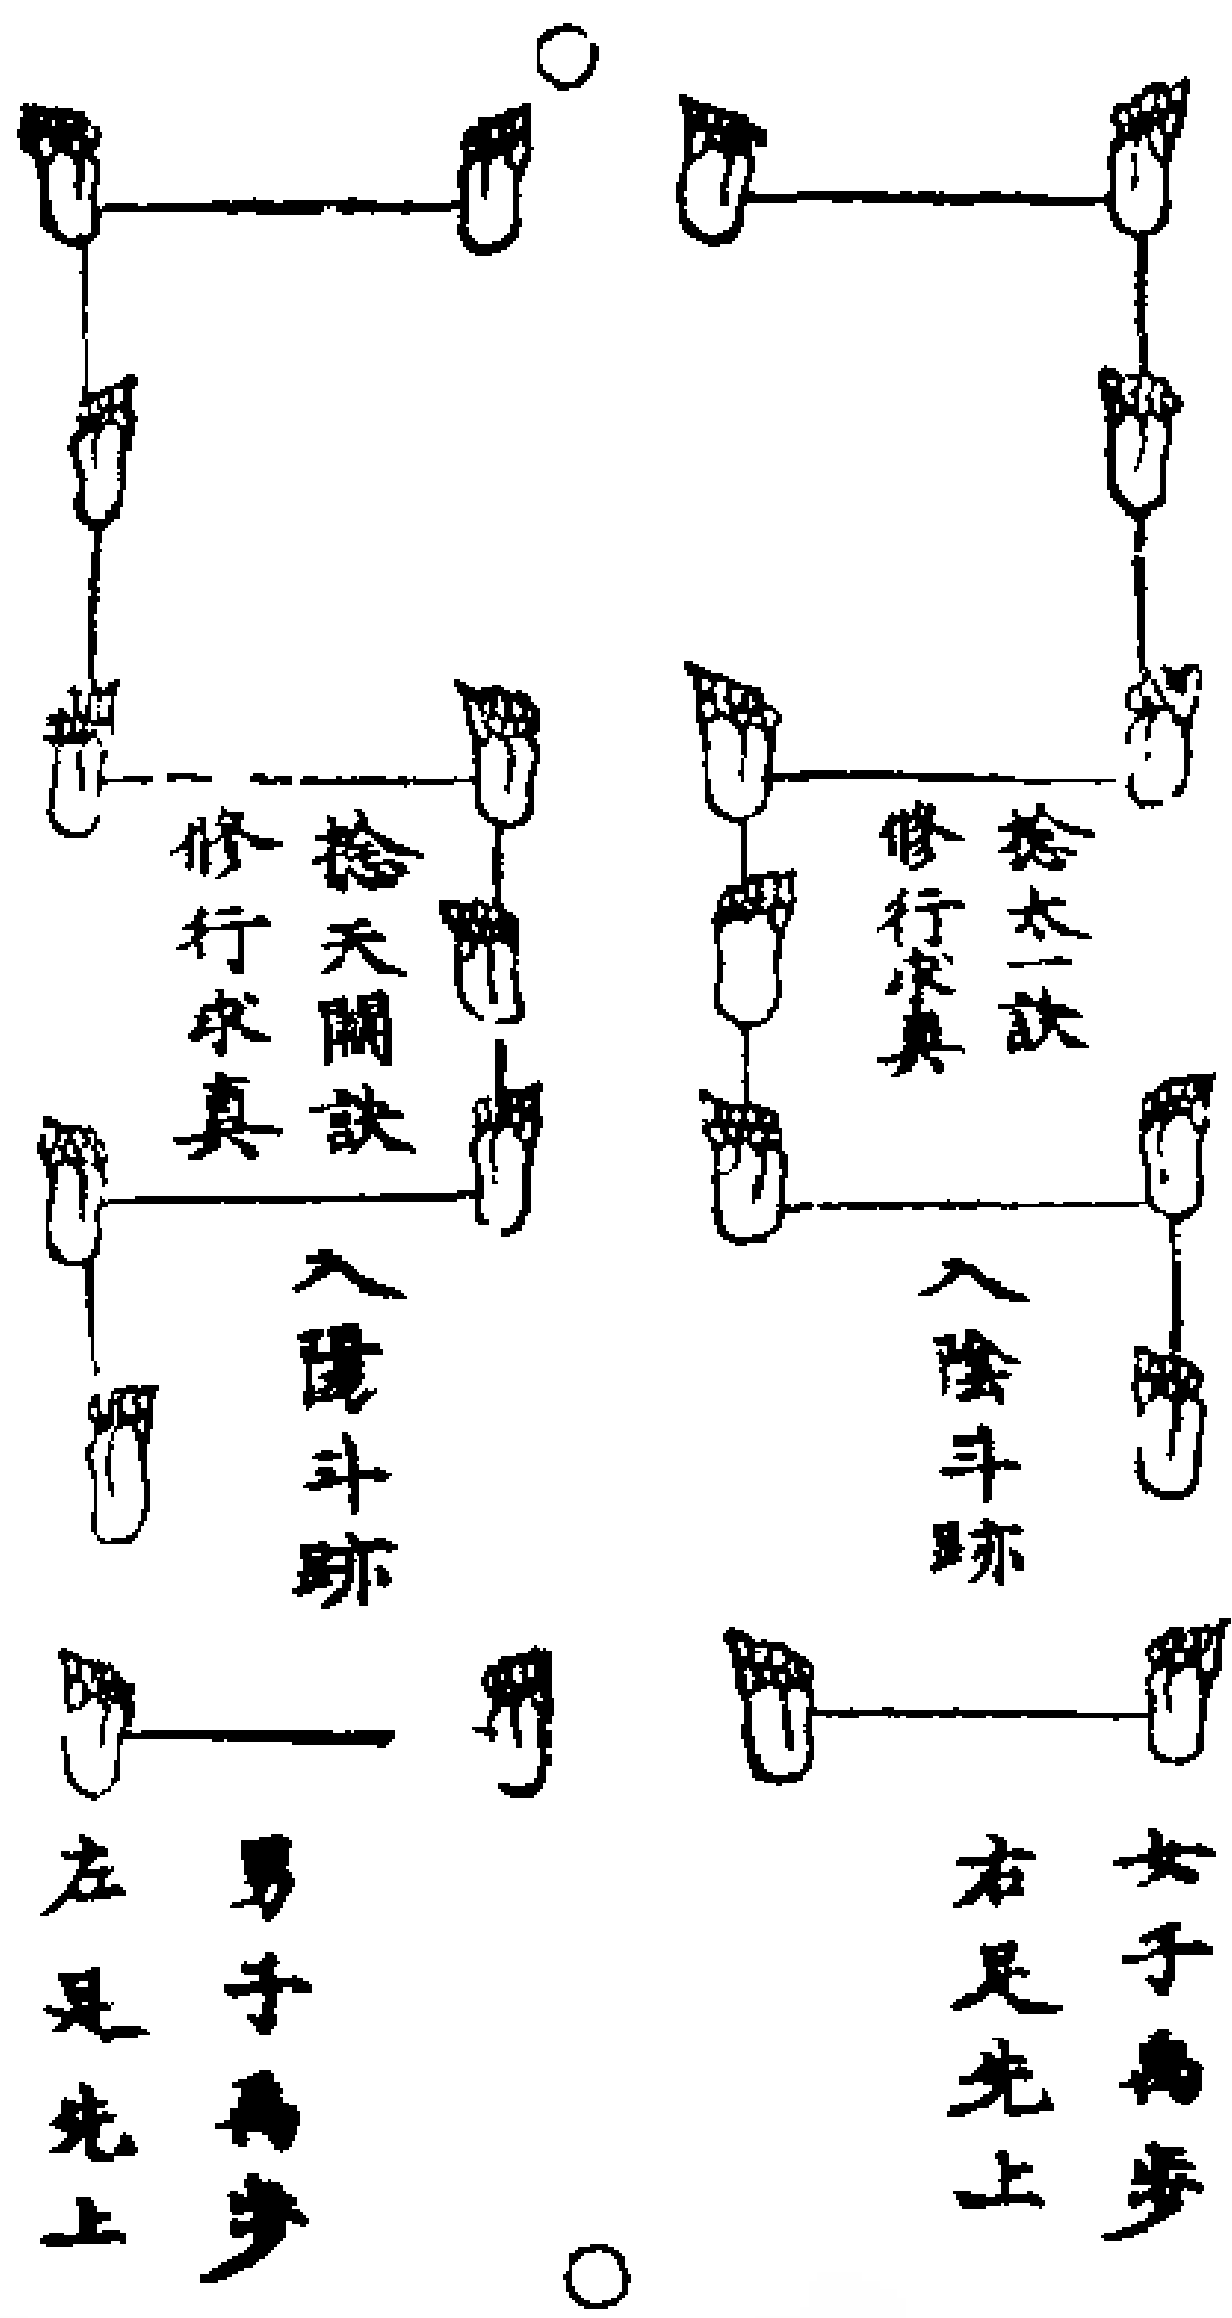 捻太一訣
修行求真
入陰斗跡
女子禹步
右足先上
捻天開訣
修行求真
入陽斗跡
男子禹步
左足先上